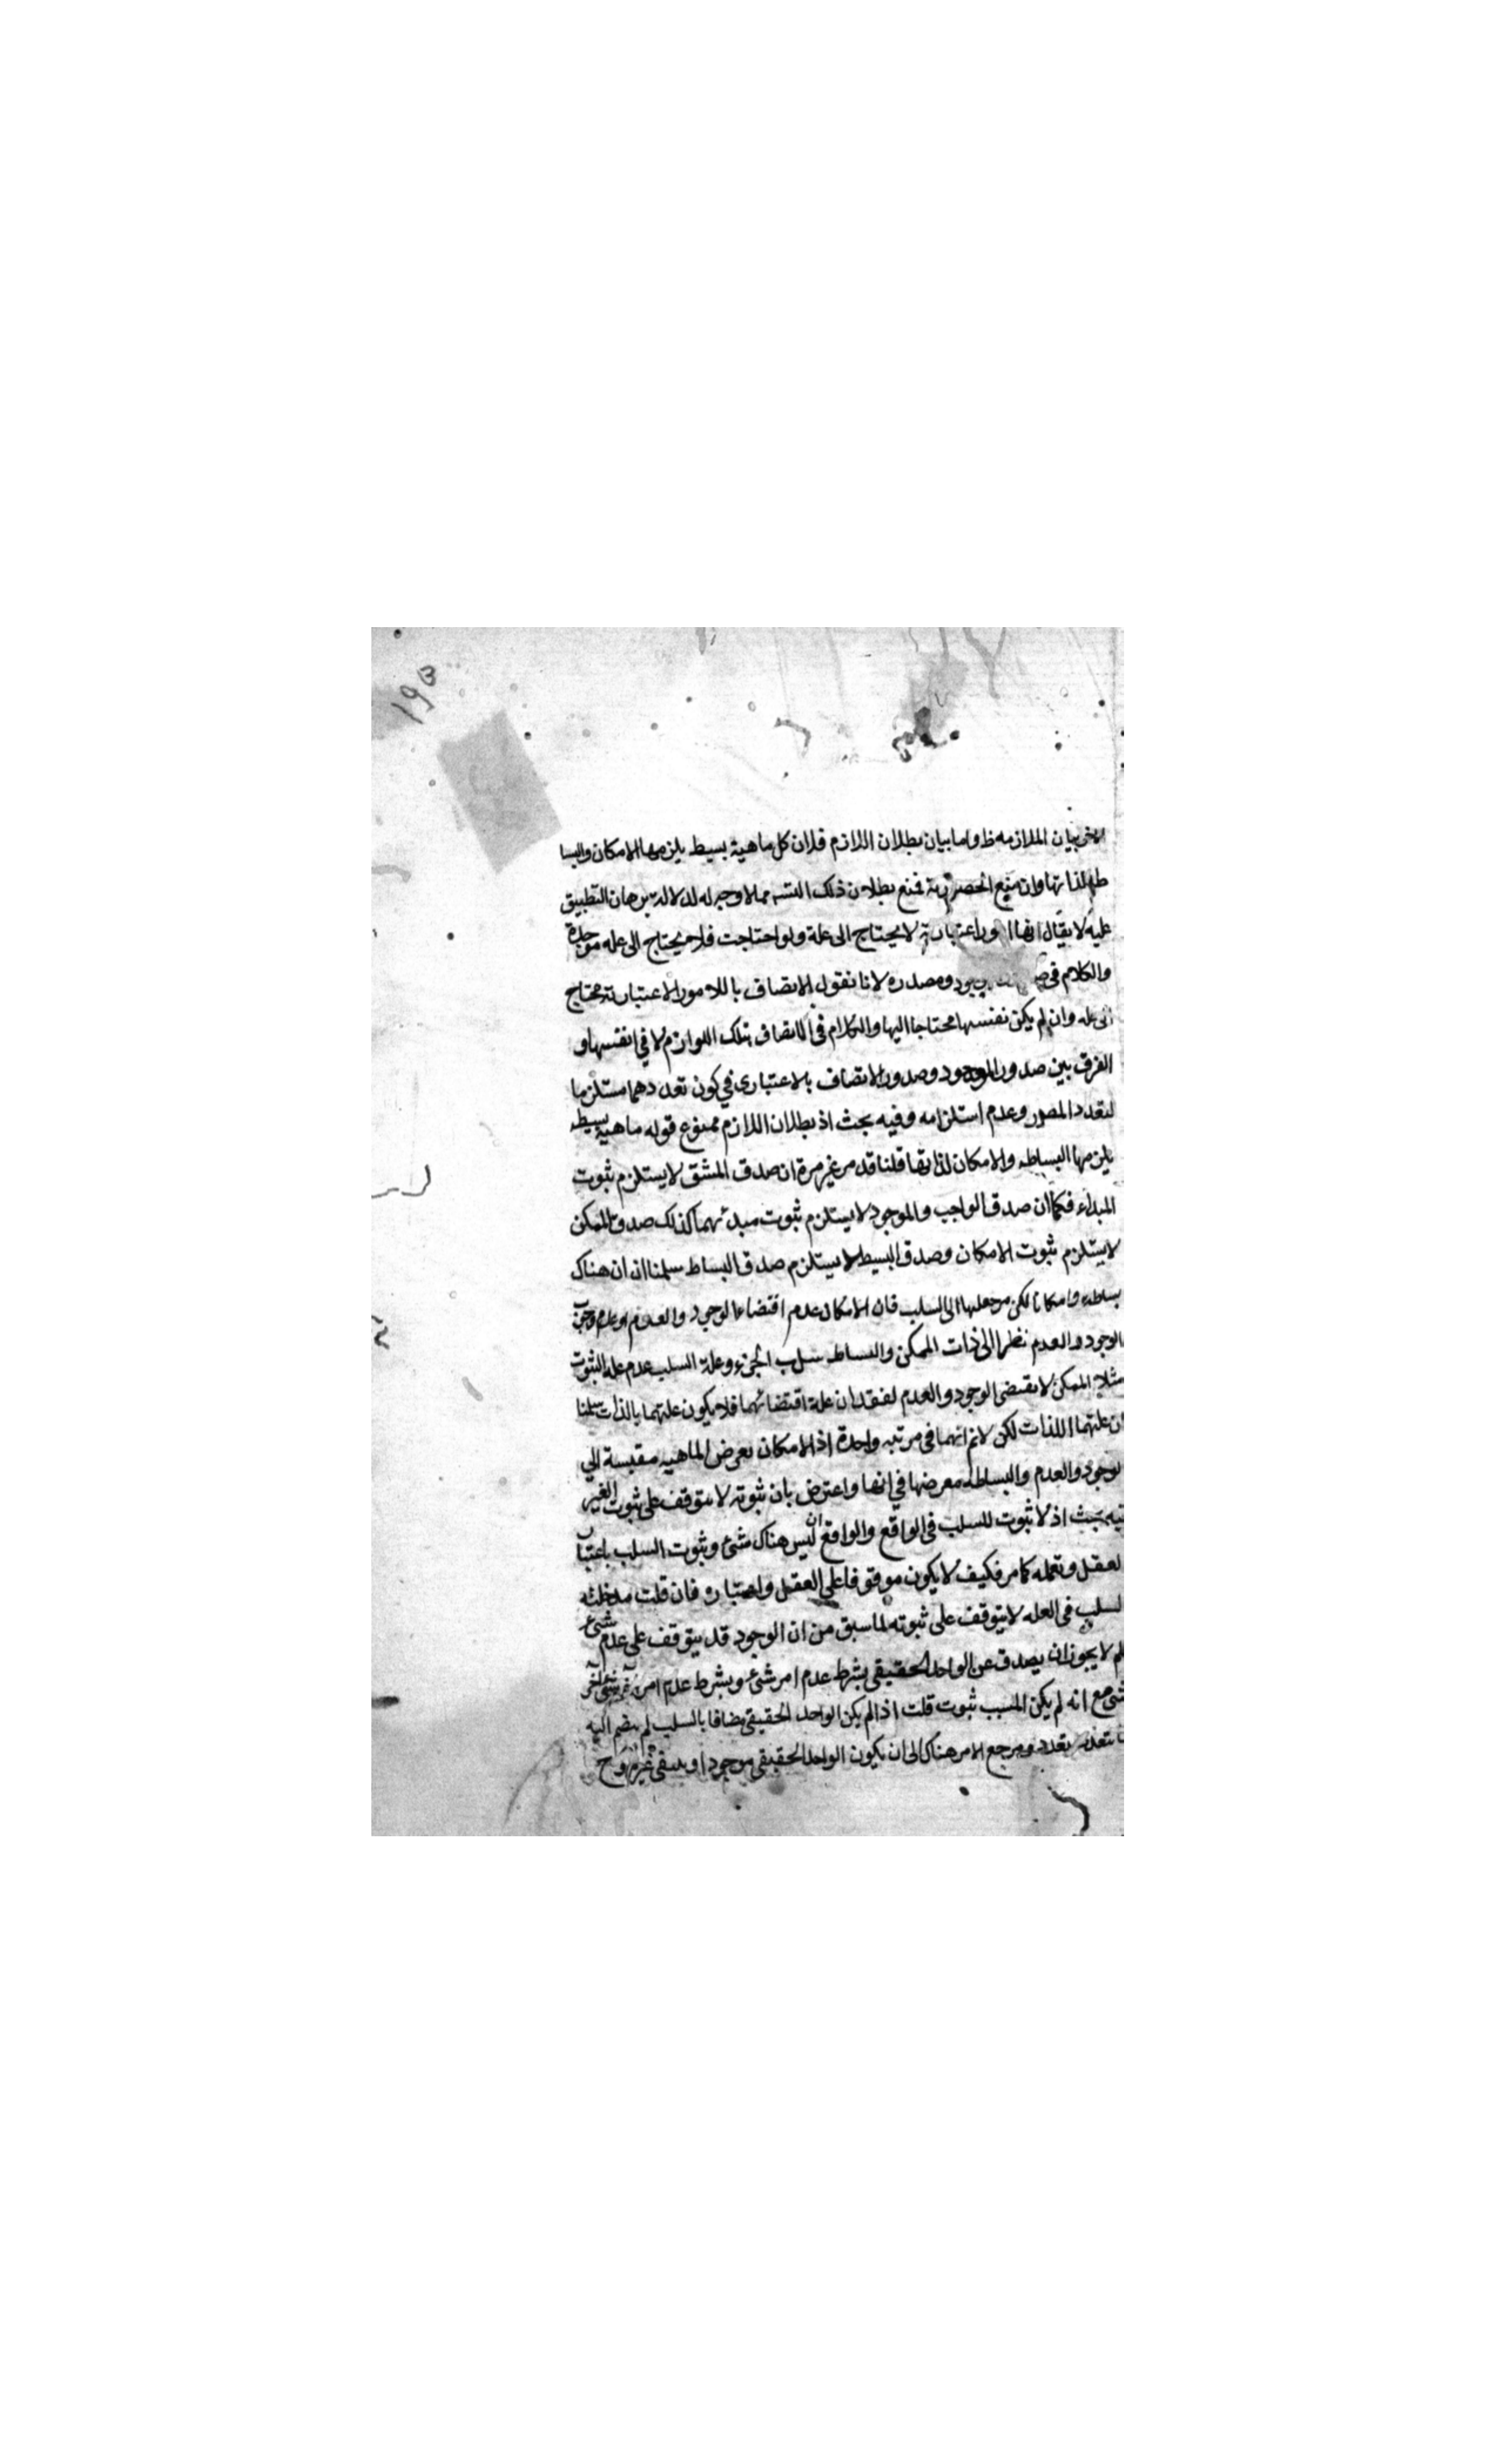 ١٩٣
بيان الملازمه ظ واما بيان بطلان اللازم فلان كل ماهية بسيط يلزمها الامكان والبسا
طه لذاتها وان منع الحصر فمنع بطلان ذلك التسـ مما لا وجه له لدلالة برهان التطبيق
عليه لا يقال انها اعتبارية لا يحتاج الى علة ولو احتاجت فلا يحتاج الى عله موجدة
والكلام فى ومصدره لانا نقول الاتصاف باللامور الاعتبارية محتاج
الى عله وان لم يكن نفسها محتاجا اليها والكلام فى الاتصاف بتلك اللوازم لا فى انفسها و
الفرق بين صدور الموجود وصدور الاتصاف بالاعتبارى في كون تعددهما مستلزما
لتعدد المصدر وعدم استلزامه وفيه بحث اذ بطلان اللازم ممنوع قوله ماهية بسيطه
يلزمها البساطه والامكان لذاتها قلنا قد مر غير مرة ان صدق المشتق لا يستلزم ثبوت
المبداء فكما ان صدق الواجب والموجود لا يستلزم ثبوت مبدئهما كذلك صدق الممكن
لا يستلزم ثبوت الامكان وصدق البسيط لا يستلزم صدق البساط سلمنا ان ان هناك
بساطه وامكانا لكن مرجعها الى السلب فان الامكان عدم اقتضاء الوجود والعدم او عدم وجوب
الوجود والعدم نظرا الى ذات الممكن والبساطه سلب الجزء وعلة السلب عدم علة الثبوت
مثلا الممكن لا يقتضى الوجود والعدم لفقدان علة اقتضائهما فلا يكون علتهما بالذات سلمنا
ان علتهما اللذات لكن لانم انهما فى مرتبه واحدة اذ الامكان يعرض الماهيه مقيسة الي
لوجود والعدم والبساطه معرضها في انها واعترض بان ثبوته لا يتوقف على ثبوت الغير
فيه بحث اذ لا ثبوت للسلب فى الواقع والواقع ان ليس هناك شئ وثبوت السلب باعتبا
لعقل وتعمله كما مر فكيف لا يكون موقوفا على العقل واعتباره فان قلت مدخلية
لسلب فى العله لا يتوقف على ثبوته لما سبق من ان الوجود قد يتوقف على عدم شئ
لم لا يجوز ان يصدق عن الواحد الحقيقى بشرط عدم امر شئ وبشرط عدم امر آخر شئ آخر
شئ مع انه لم يكن السب ثبوت قلت اذا لم يكن الواحد الحقيقى مضافا بالسلب لم ينضم اليه
تعدد ومرجع الامر هناك الى ان يكون الواحد الحقيقى موجودا ويبقى غيره وح